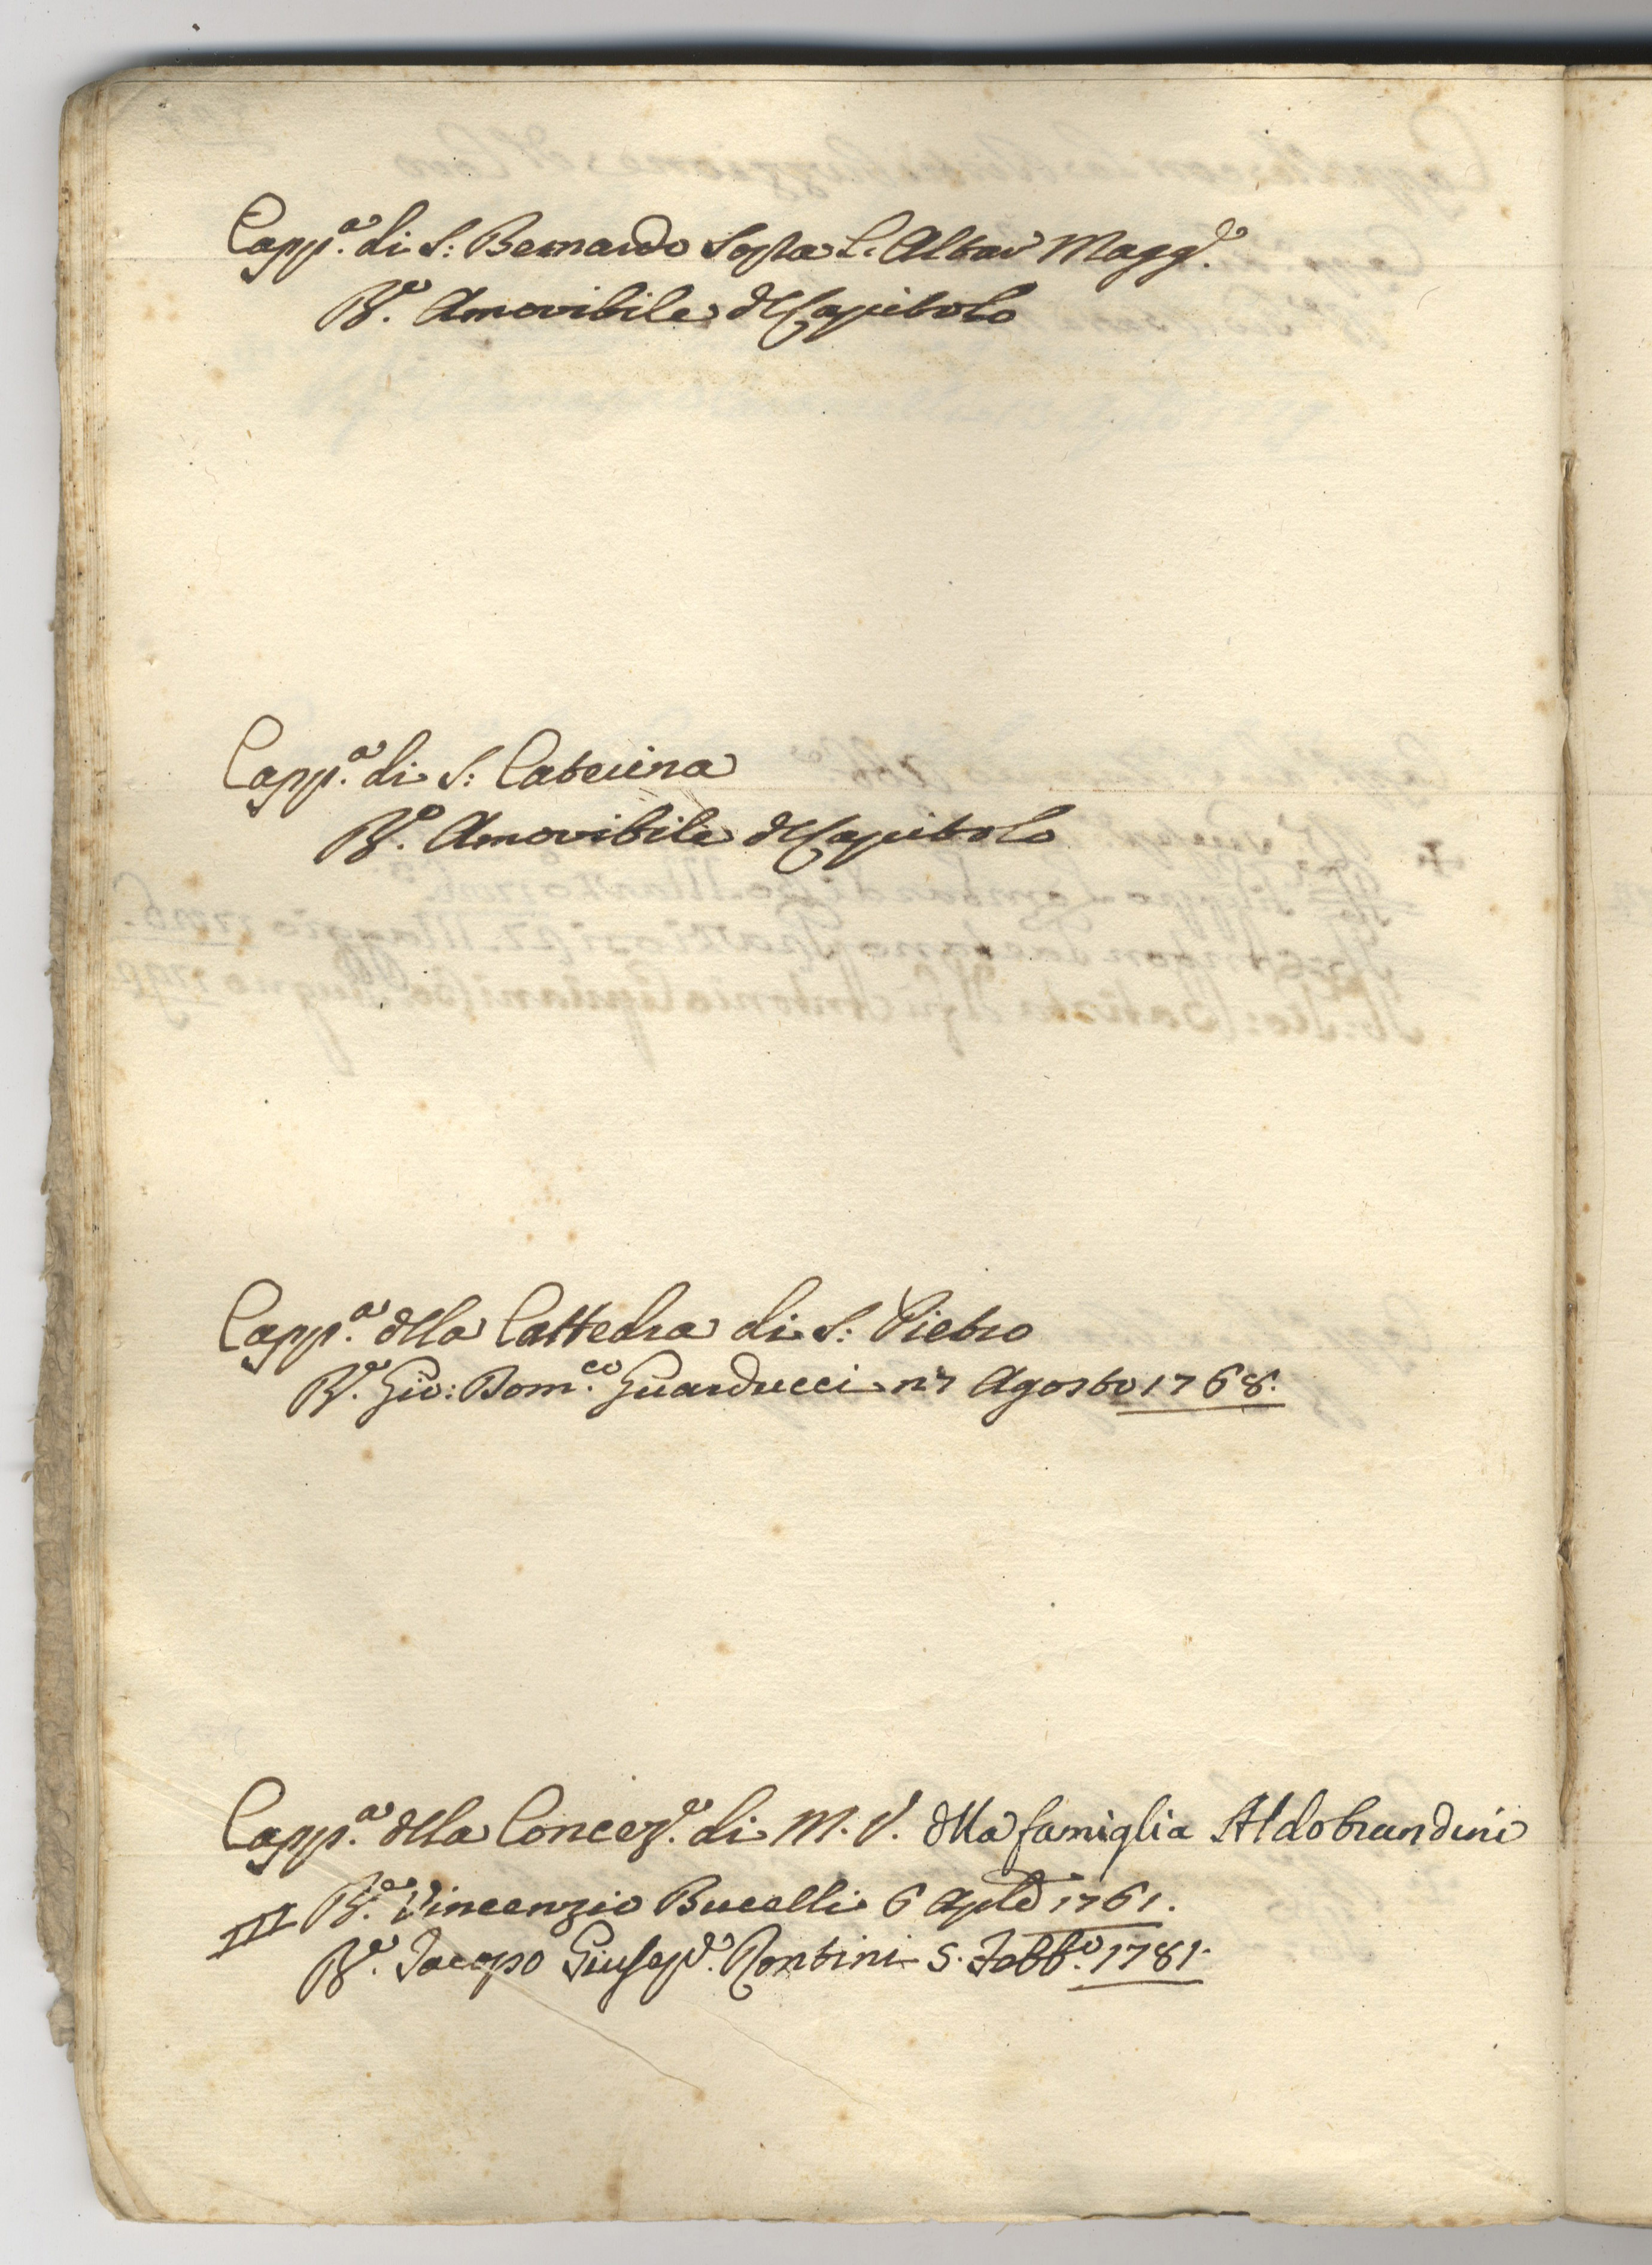 Capp.ª di S: Bernardo sopra l'Altar Magg.e
P.e Amovibile dl Capitolo
Capp.ª di S: Caterina
P.e Amovibile dl Capitolo
Capp.ª dlla Cattedra di S: Pietro
P.e Gio: Dom.co Guarducci 27 Agosto 1768.
Capp.ª dlla Concez.e di M. V. dlla famiglia Aldobrandini
P.e Vincenzio Bucelli 6 Aple 1761.
P.e Jacopo Giusep.e Rontini 5. Febb.o 1781.